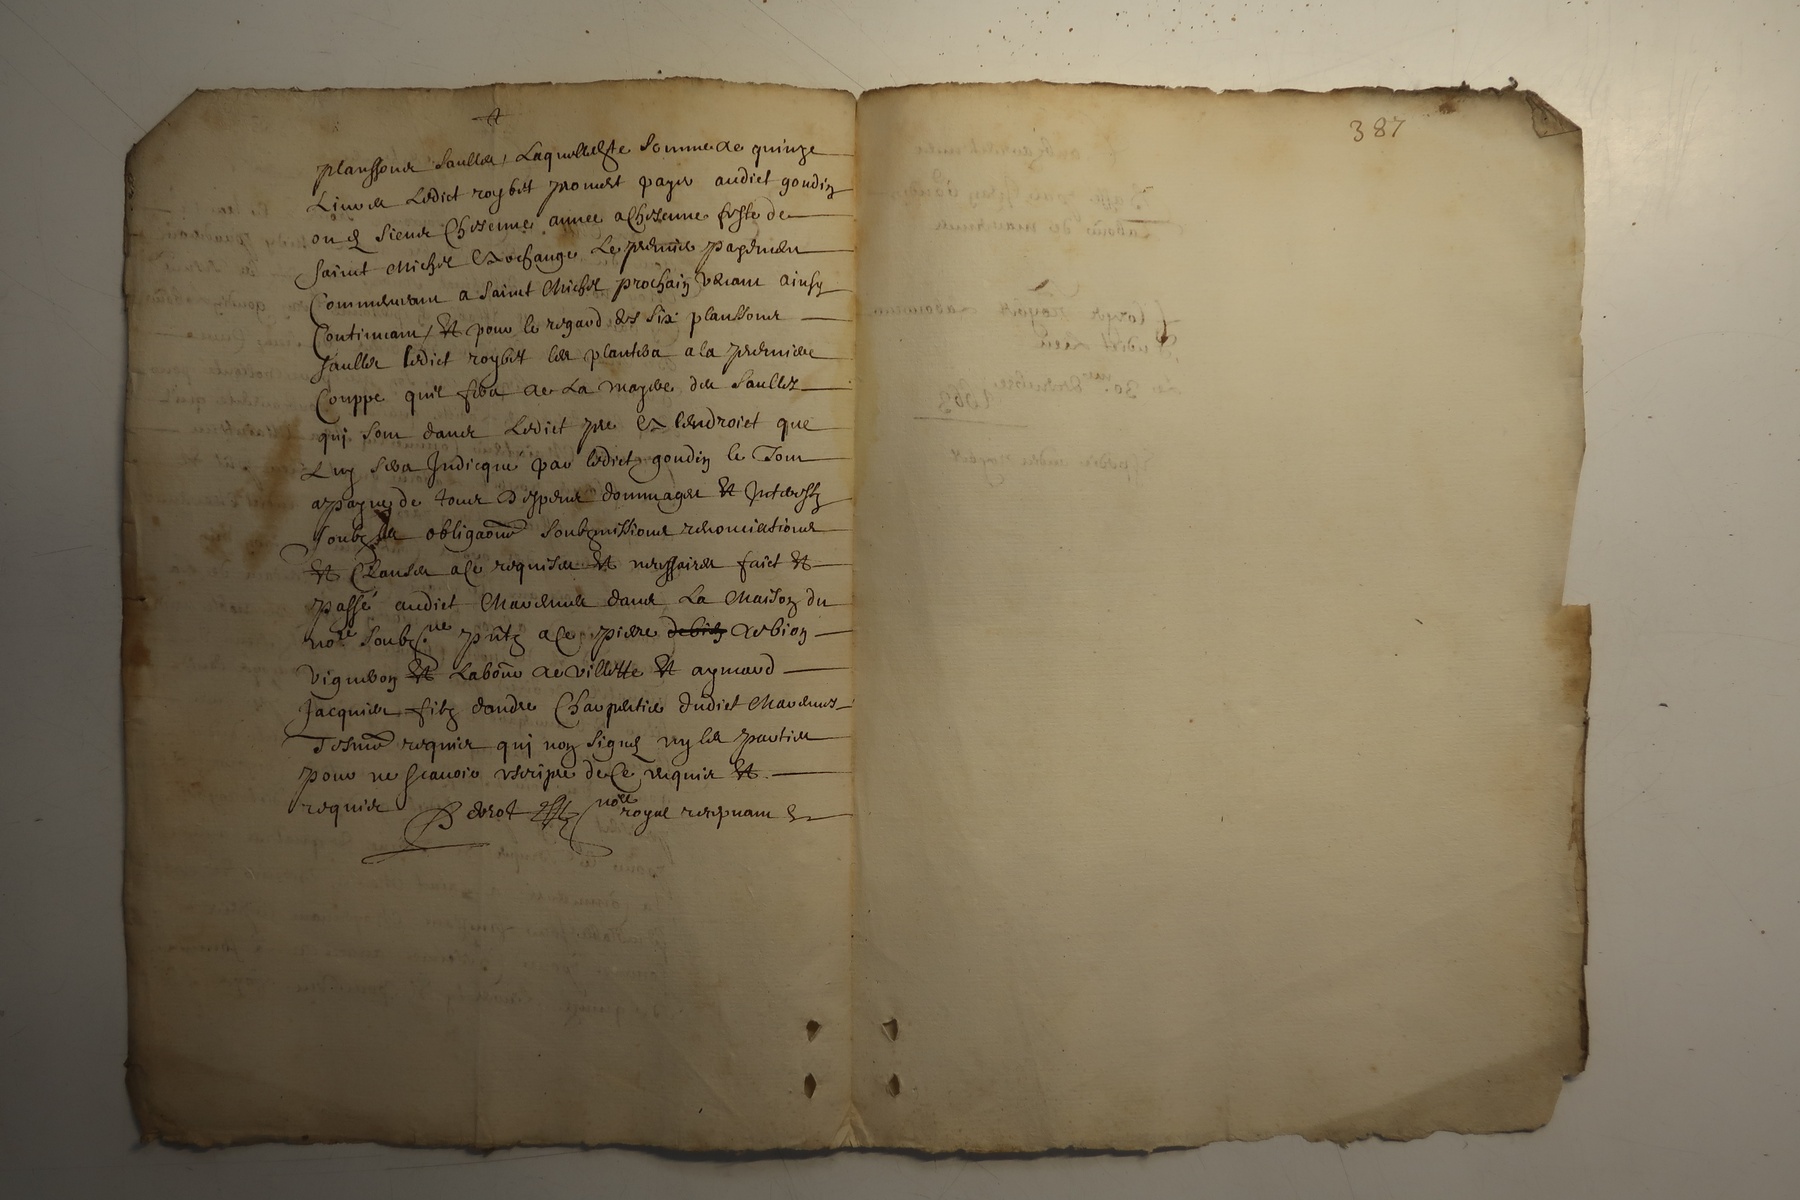 planssons saulles, laquelle susdite somme de quinze
livres ledict roybet promet payer audict goudin
ou es siens chescune annee a chescune feste de
saint Michel archange le premier payement
Commensant a saint Michel prochain venant ainsy
Continuant, et pour le regard des six planssons
saulles ledict roybet les plantera a la premiere
Couppe quil fera de la mayere des saulles
qui sont dans ledict pre et lendroict que
luy sera Indicqué par ledict goudin le Tout
a payne de tous despens dommages et Interestz
soubz les obligaōns soubzmissions renonciations
et Clauses a ce requises et necessaires faict et
passé audict Marcenas dans la Maison du
nore soubzne pñtz a ce pierre debion
vigneron et labour de villette et aymard
Jacquier filz dandre Charpentier dudict Marcenas
Tesmō requis qui non signes ny les parties
pour ne scavoir escripre de ce requis et
requis Perrot nore royal recepvant
387